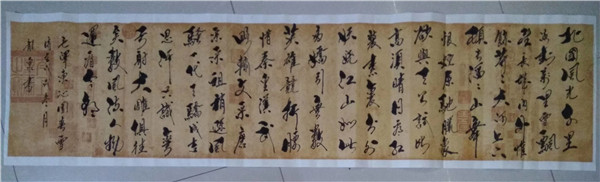 北國風光千里
冰封萬里雪飄
望長城内外惟
餘莽莽大河上下
頓失滔滔山舞
銀蛇原馳臘象
欲與天公試比
高須晴日看紅
裝素裹分外
妖嬈江山如此
多嬌引無數
英雄競折腰
惜秦皇漢武
略輸文采唐
宗宋祖稍遜風
騷一代天驕成吉
思汗只識彎
弓射大雕俱往
矣數風流人物
還看今朝
毛澤東沁園春雪
月
書